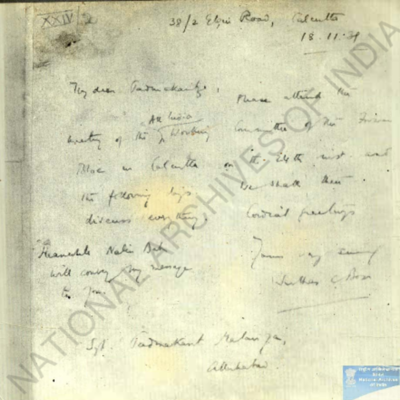 XXIV
38/2 Elgin Road, Calcutta
18.11.39
My dear Padmakantji,
Please attend the
All India
meeting of the Working Committee of the
Bloc in Calcutta on the inst and
the following days. We shall then
discuss everything. Cordial greetings
Meanwhile Babu
will convey my message
to you.
Yours
Subhas C. Bose
Sjt. Padmakant Malaviya,
Allahabad
NATIONAL ARCHIVES OF INDIA